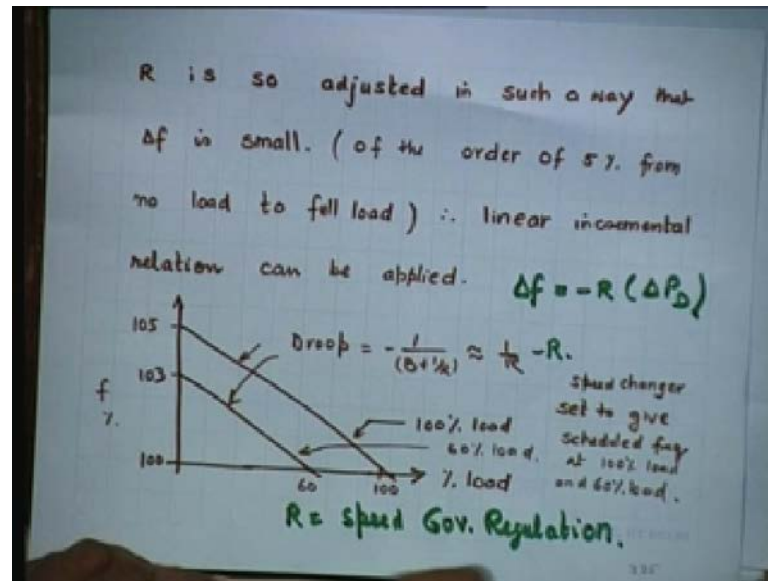 R is so adjusted in such a way that
Δf is small. (of the order of 5%. from
no load to fell load) ∴ linear incremental
relation can be applied. Δf = -R (ΔP_D)
105
Droop = - 1/(B+1/R) ≈ 1/R -R.
103
f
%.
100
60
100
100% load
60% load.
% load
speed changer
set to give
scheduled freq
at 100% load
and 60% load.
R = speed Gov. Regulation.